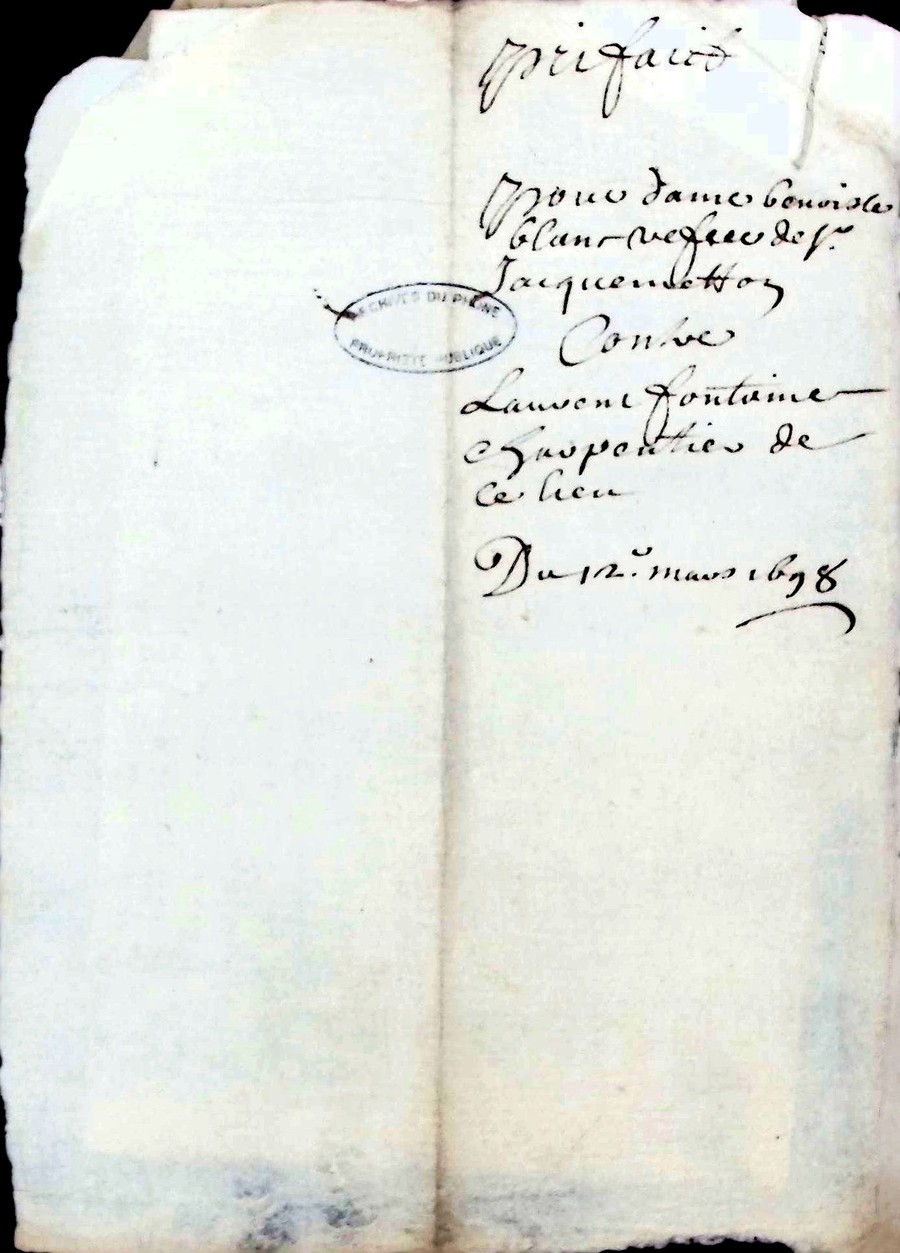 prifaict
pour dame benoiste
blanc vefve de sr
Jacquemetton
Contre
Laurent fontaine
charpentier de
ce lieu
ARCHIVES DU RHONE
PROPRIETE PUBLIQUE
Du 12e mars 1698